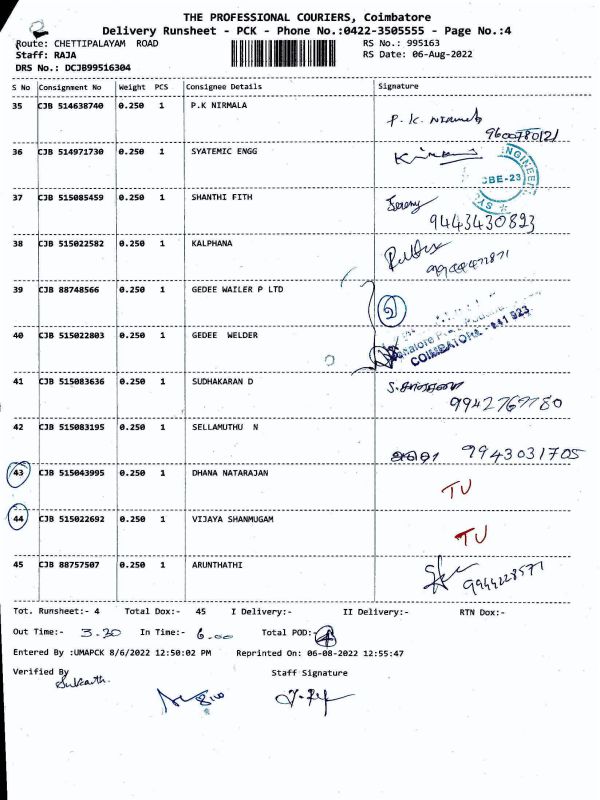 THE PROFESSIONAL COURIERS, Coimbatore
Delivery Runsheet - PCK - Phone No.:0422-3505555 - Page No.:4
Route: CHETTIPALAYAM ROAD RS No.: 995163
Staff: RAJA RS Date: 06-Aug-2022
DRS No.: DCJB99516304
S No Consignment No Weight PCS Consignee Details Signature
35 CJB 514638740 0.250 1 P.K NIRMALA
P. K. Nirmala
9600780121
36 CJB 514971730 0.250 1 SYATEMIC ENGG
CBE-23
37 CJB 515085459 0.250 1 SHANTHI FITH
Jeremy
9443430893
38 CJB 515022582 0.250 1 KALPHANA
39 CJB 88748566 0.250 1 GEDEE WAILER P LTD
2
40 CJB 515022803 0.250 1 GEDEE WELDER
COIMBATORE - 641 023
41 CJB 515083636 0.250 1 SUDHAKARAN D
9942769780
42 CJB 515083195 0.250 1 SELLAMUTHU N
9943031705
43 CJB 515043995 0.250 1 DHANA NATARAJAN
TU
44 CJB 515022692 0.250 1 VIJAYA SHANMUGAM
TU
45 CJB 88757507 0.250 1 ARUNTHATHI
9944228571
Tot. Runsheet:- 4 Total Dox:- 45 I Delivery:- II Delivery:- RTN Dox:-
Out Time:- 3.30 In Time:- 6.00 Total POD:- 4
Entered By :UMAPCK 8/6/2022 12:50:02 PM Reprinted On: 06-08-2022 12:55:47
Verified By Staff Signature